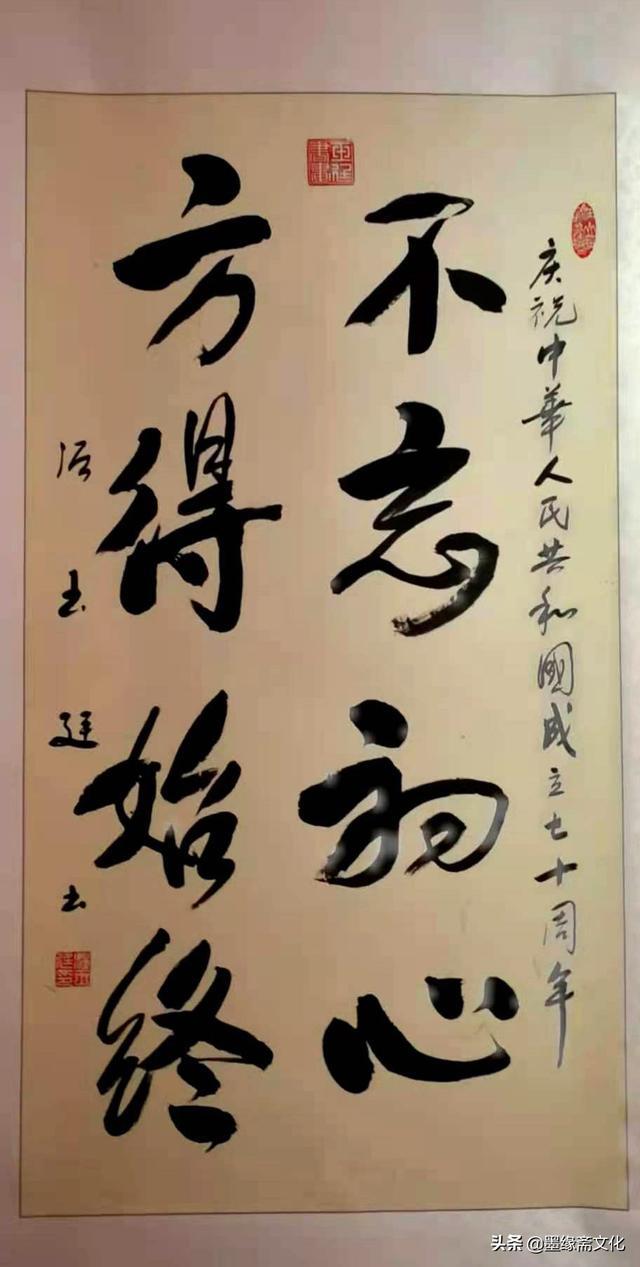 庆祝中华人民共和國成立七十周年
不忘初心
方得始终
玉廷书
头条 @墨缘斋文化